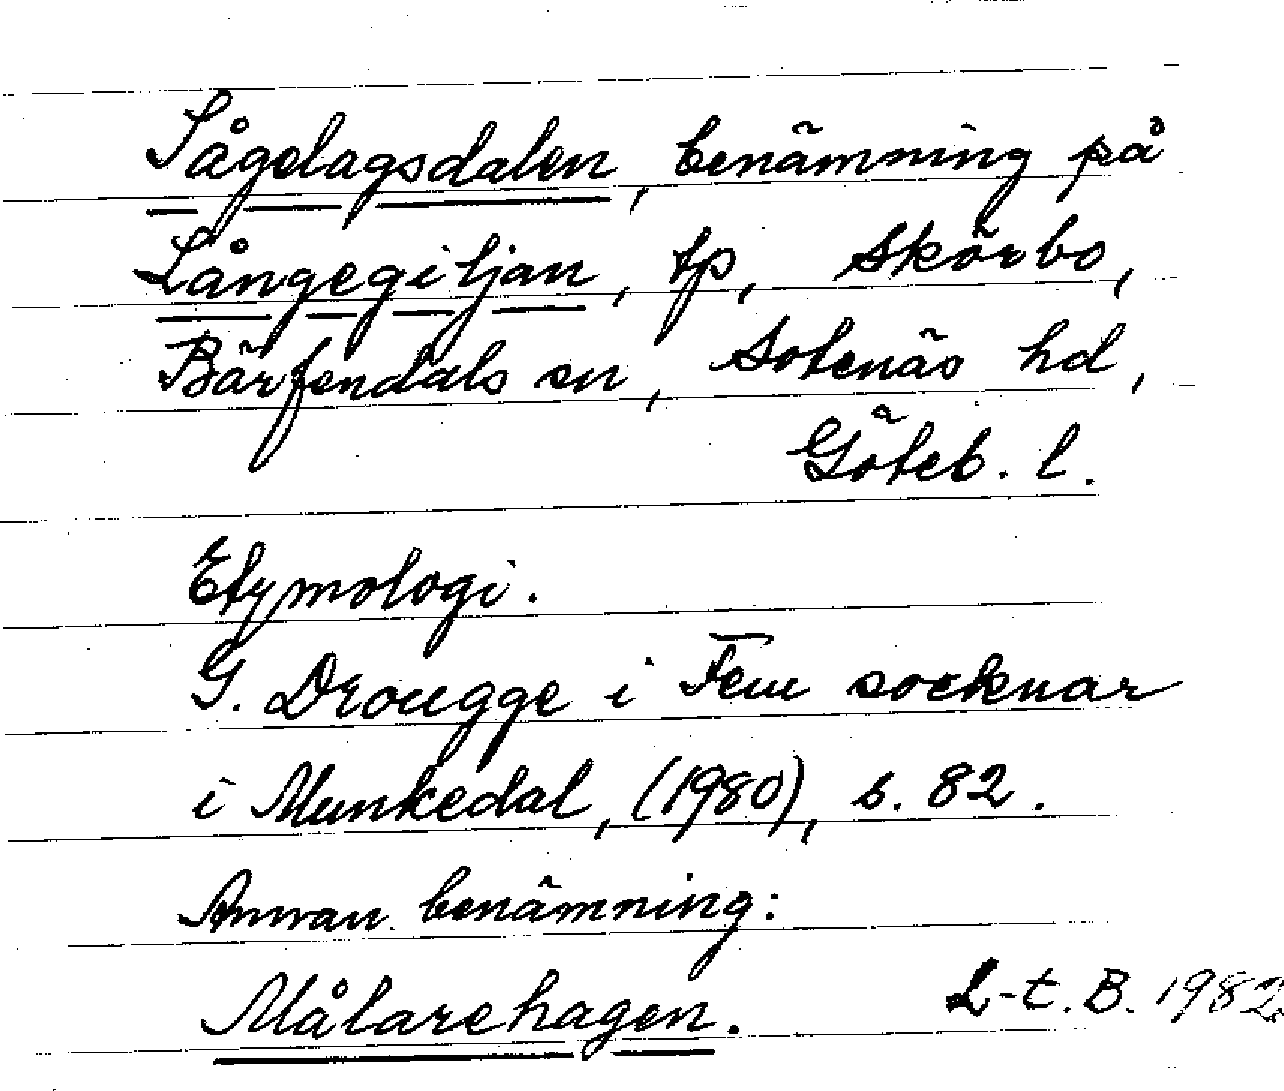 Sågelagsdalen, benämning på
Långegiljan, tp, Skörbo,
Bärfendals sn, Sotenäs hd,
Göteb. l.
Etymologi.
G. Drougge i Fem socknar
i Munkedal, (1980), s. 82.
Annan benämning:
Målarehagen.
L-t. B. 1982.